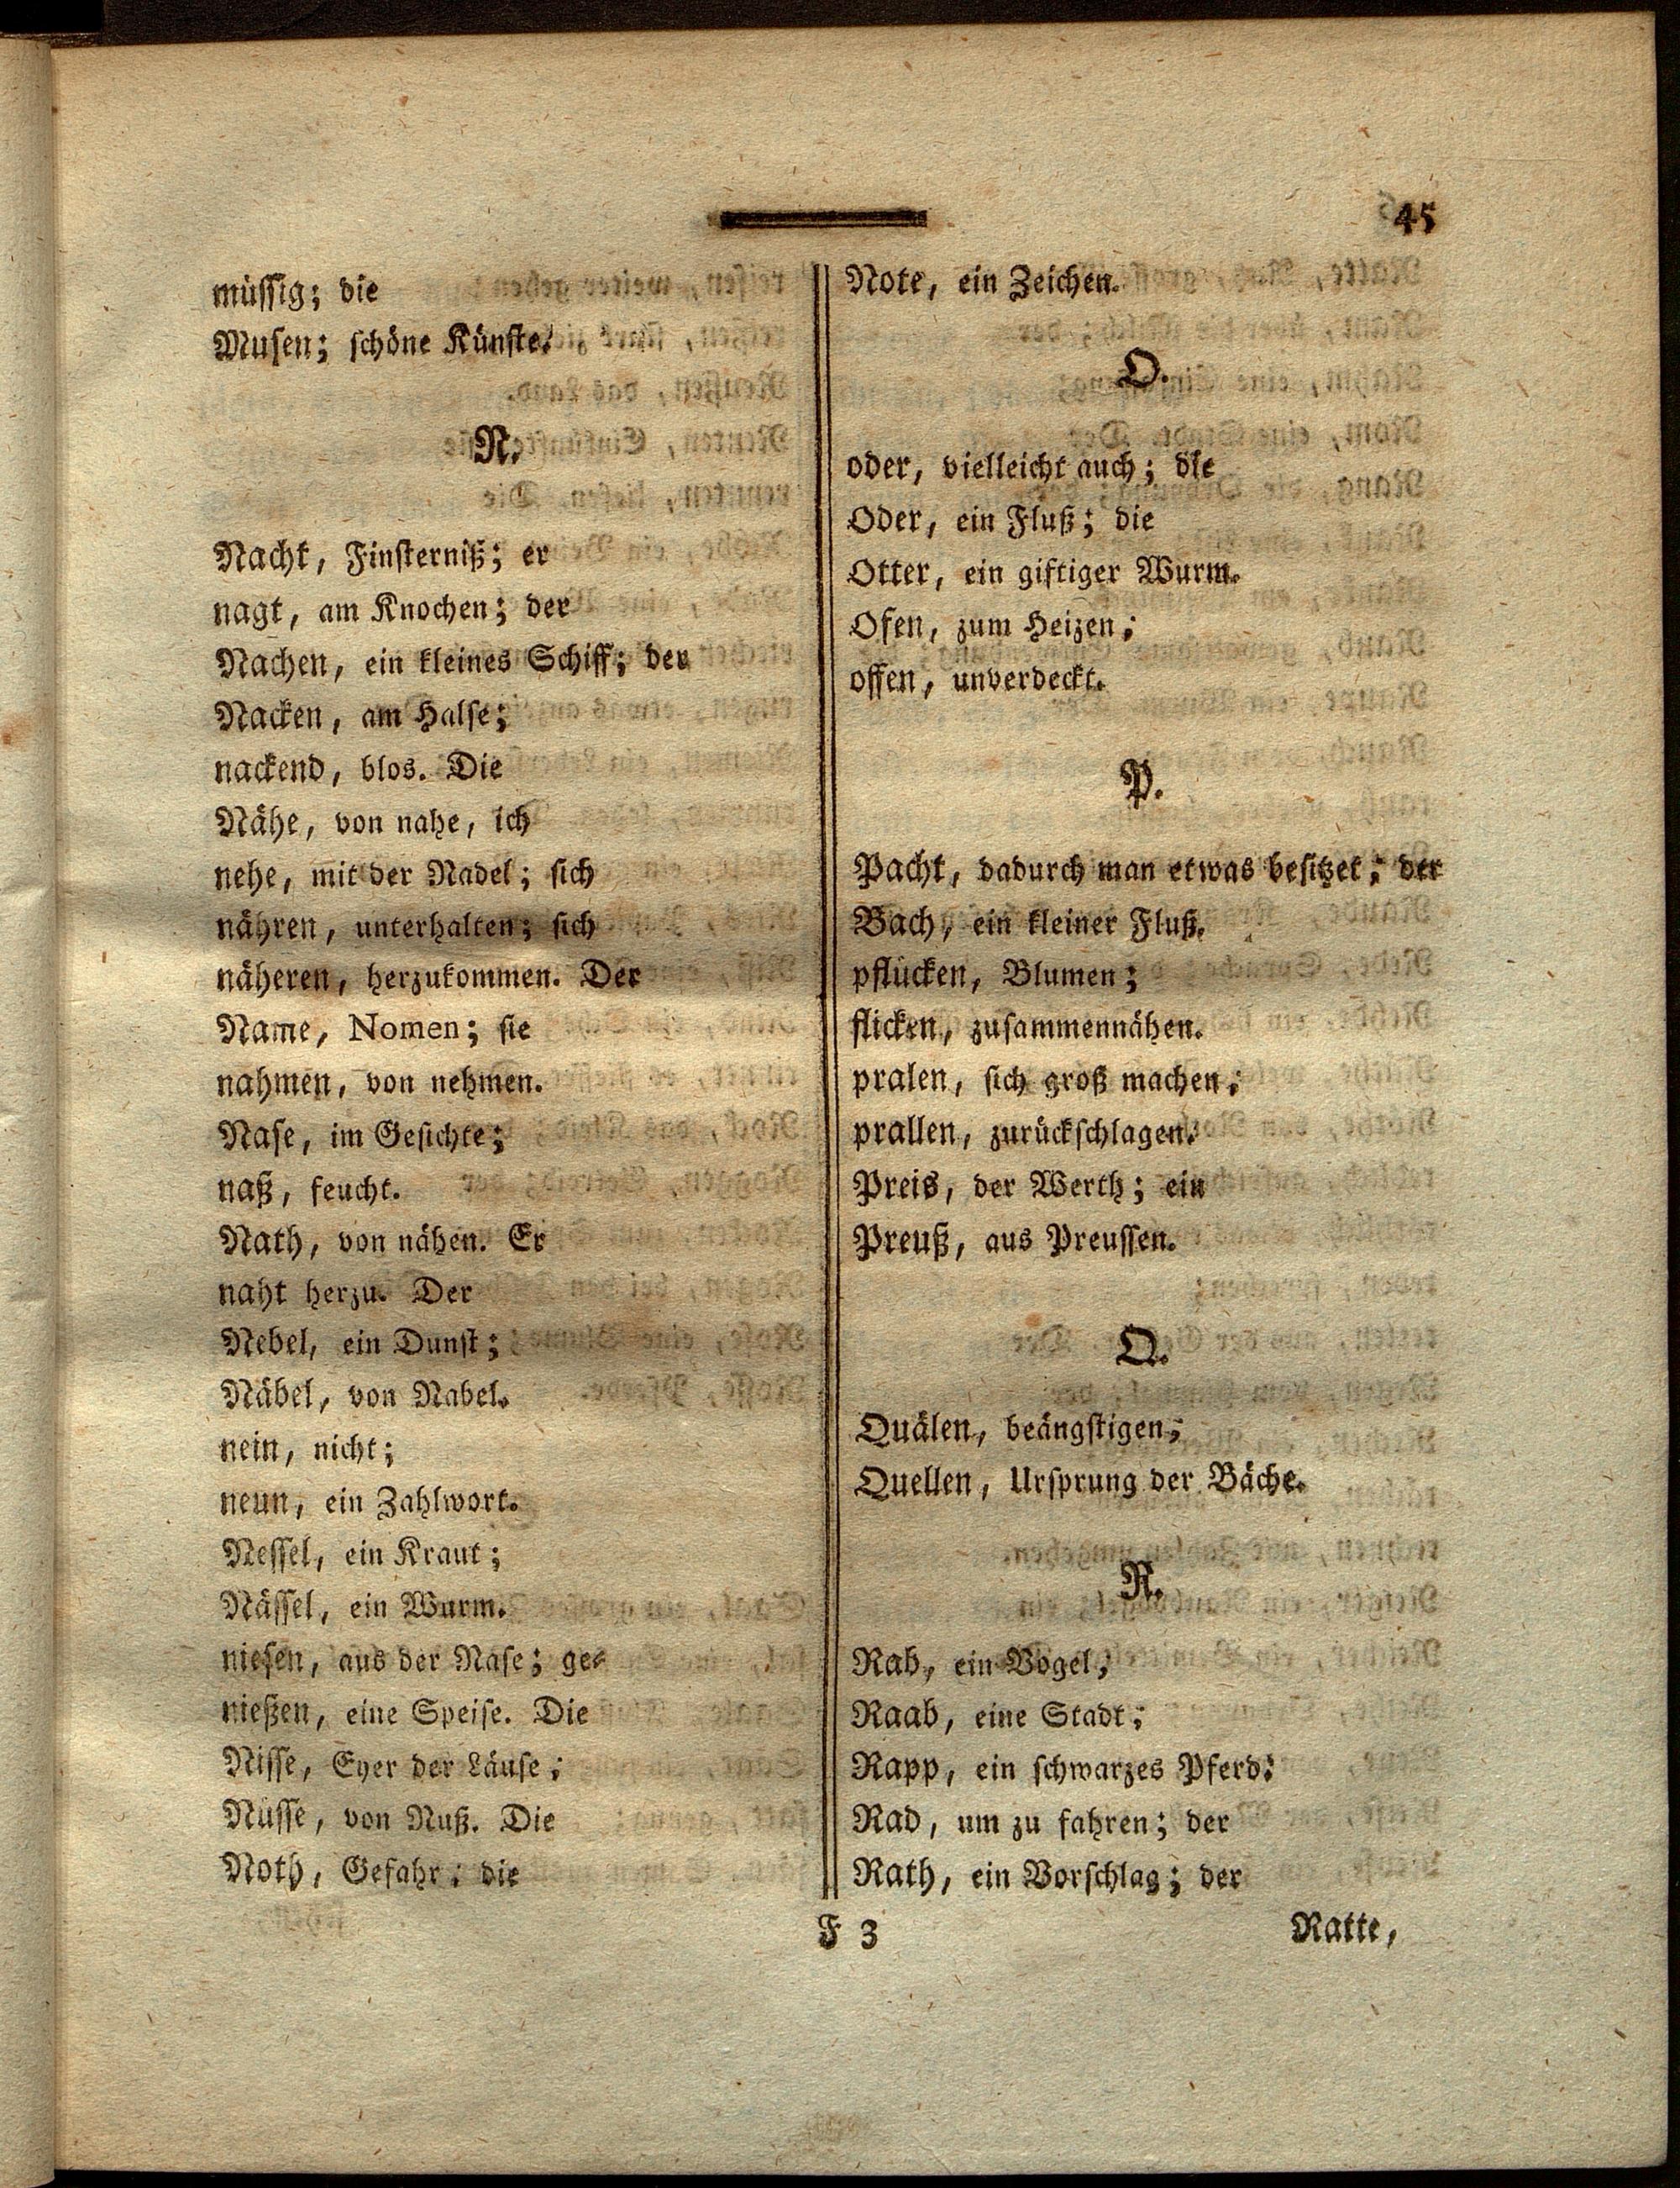 45
müssig; die
Musen; schöne Künste.
N.
Nacht, Finsterniß; er
nagt, am Knochen; der
Nachen, ein kleines Schiff; der
Nacken, am Halse;
nackend, blos. Die
Nähe, von nahe, ich
nehe, mit der Nadel; sich
nähren, unterhalten; sich
näheren, herzukommen. Der
Name, Nomen; sie
nahmen, von nehmen.
Nase, im Gesichte;
naß, feucht.
Nath, von nähen. Er
naht herzu. Der
Nebel, ein Dunst;
Näbel, von Nabel.
nein, nicht;
neun, ein Zahlwort.
Nessel, ein Kraut;
Nässel, ein Wurm.
niesen, aus der Nase; ge-
nießen, eine Speise. Die
Nisse, Eyer der Läuse;
Nüsse, von Nuß. Die
Noth, Gefahr; die
Note, ein Zeichen.
O.
oder, vielleicht auch; die
Oder, ein Fluß; die
Otter, ein giftiger Wurm.
Ofen, zum Heizen;
offen, unverdeckt.
P.
Pacht, dadurch man etwas besitzet; der
Bach, ein kleiner Fluß.
pflücken, Blumen;
flicken, zusammennähen.
pralen, sich groß machen;
prallen, zurückschlagen.
Preis, der Werth; ein
Preuß, aus Preussen.
Q.
Quälen, beängstigen;
Quellen, Ursprung der Bäche.
R.
Rab, ein Vogel;
Raab, eine Stadt;
Rapp, ein schwarzes Pferd.
Rad, um zu fahren; der
Rath, ein Vorschlag; der
F 3
Ratte,